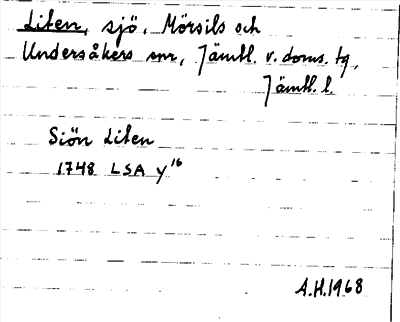 Liten, sjö, Mörsils och
Undersåkers snr, Jämtl. v. doms. tg,
Jämtl. l.
Siön Liten
1748 LSA y16
A.H.1968